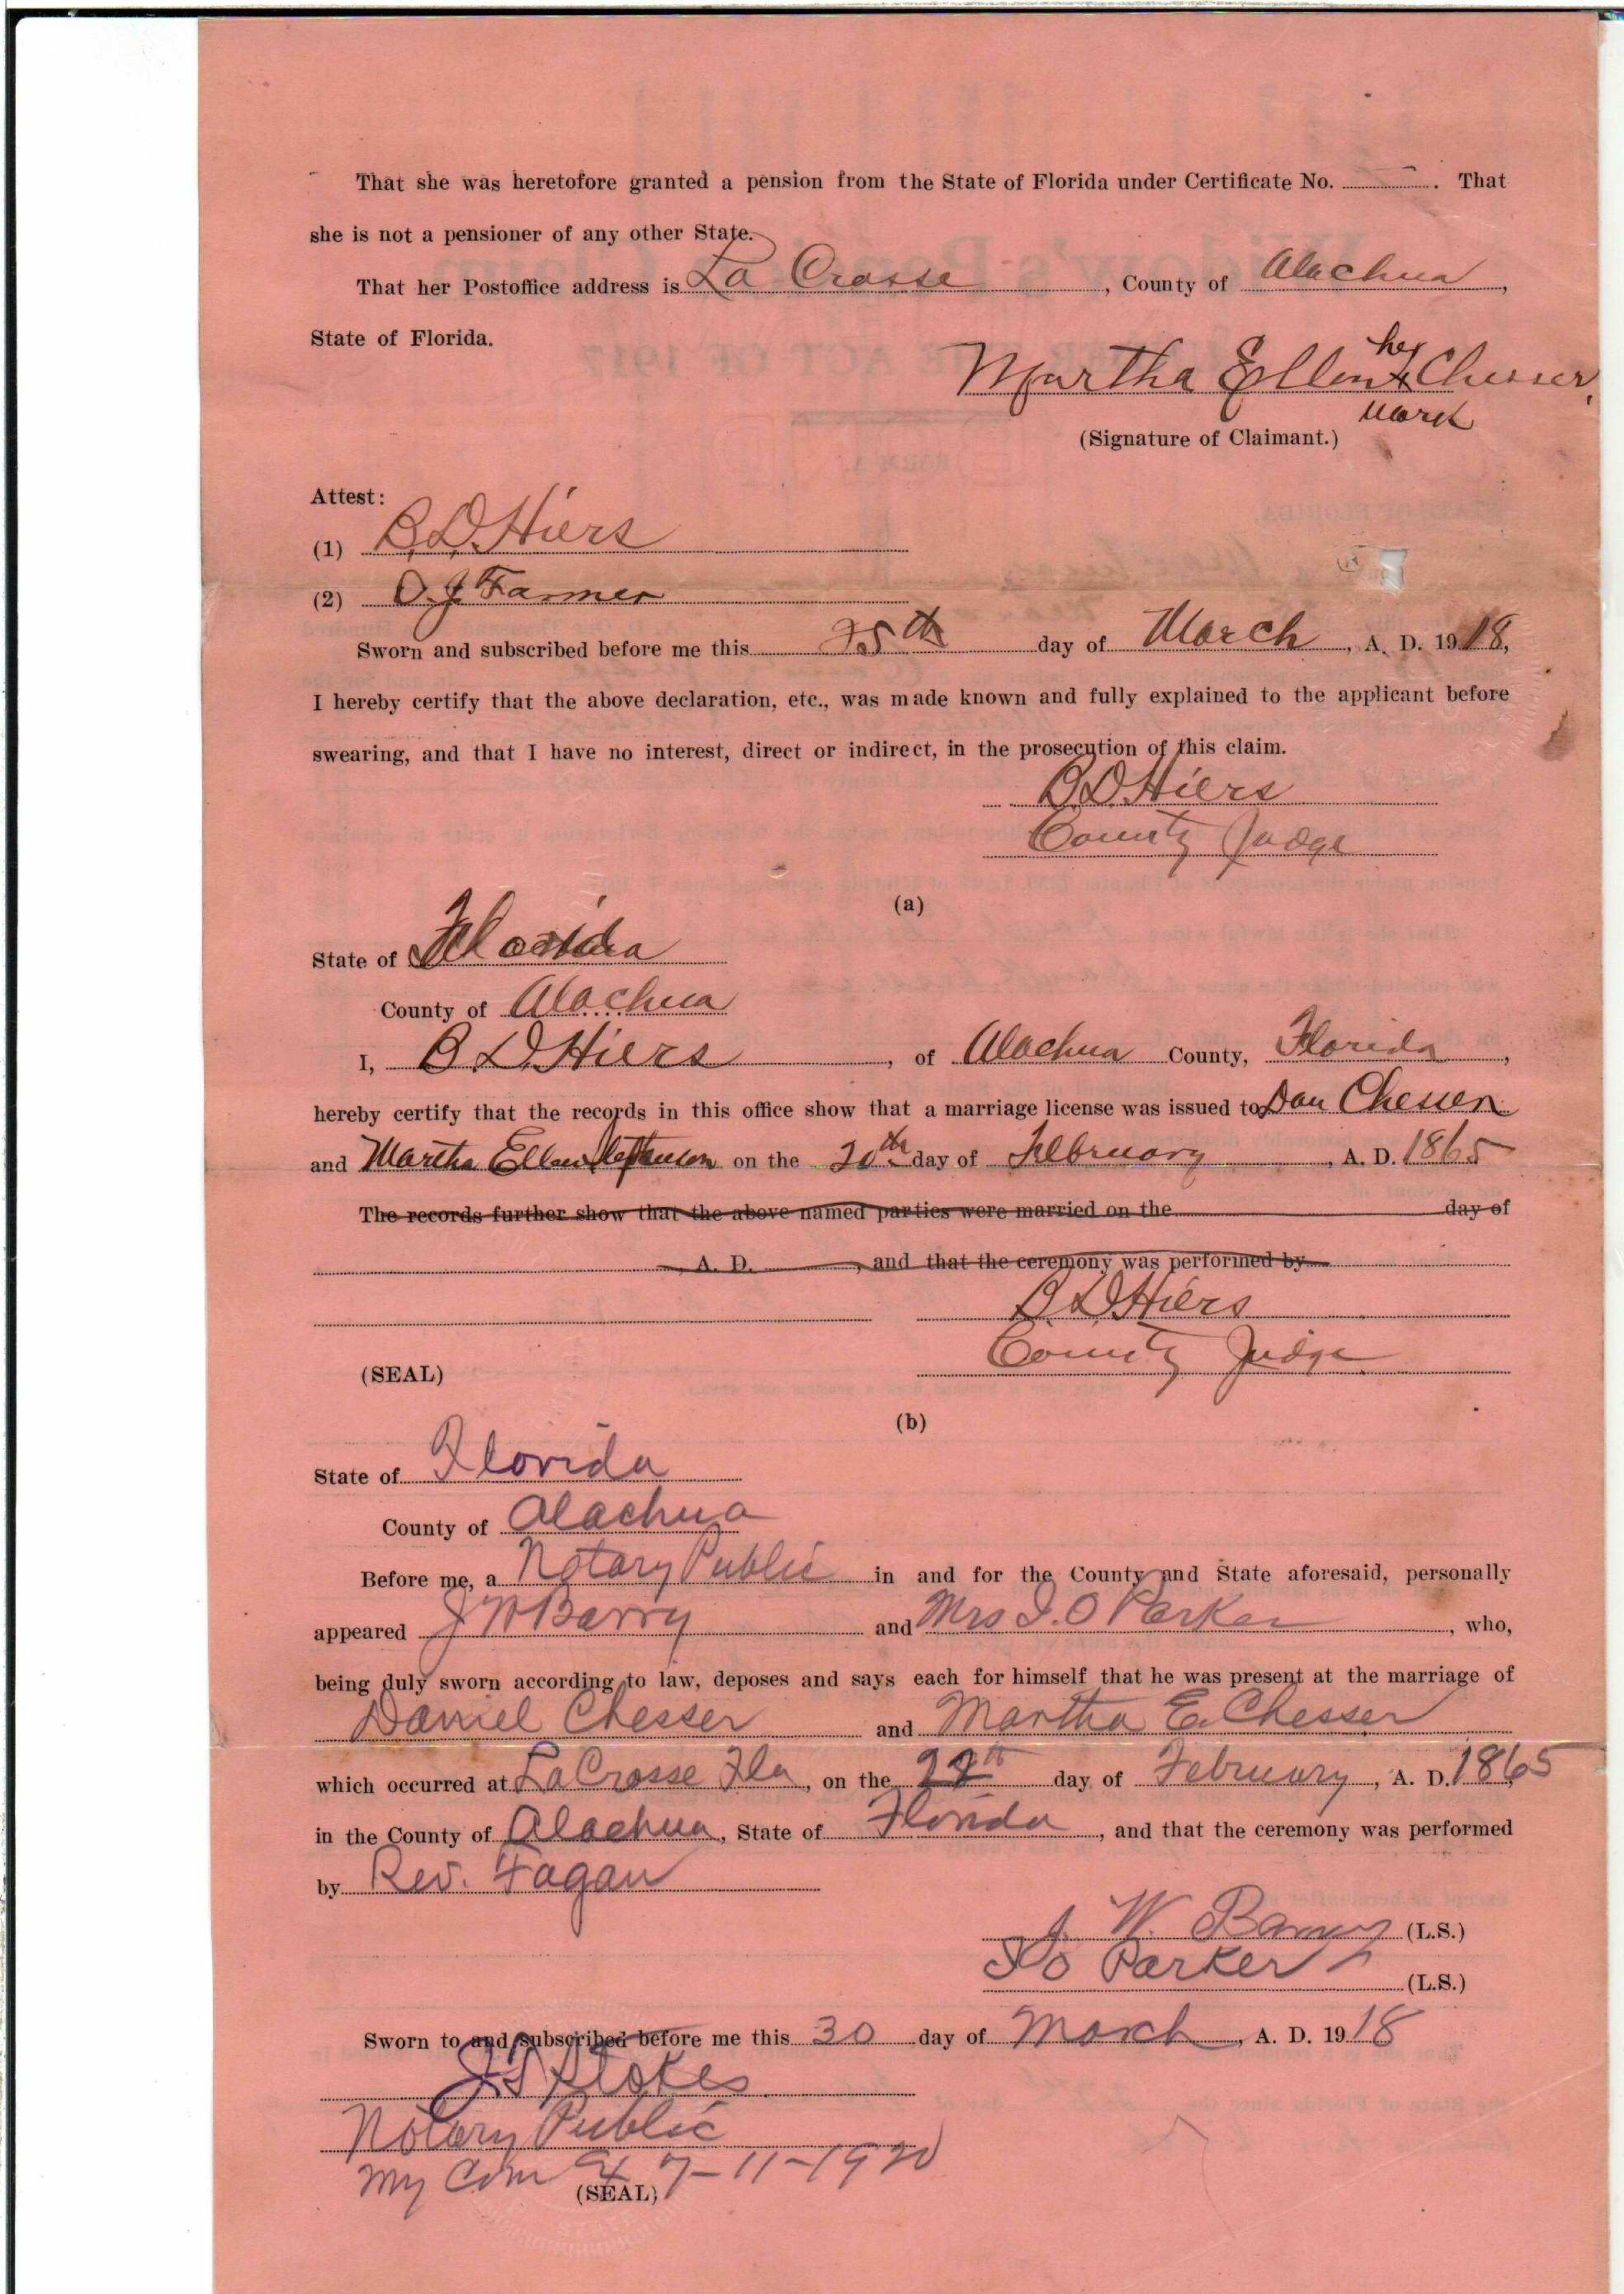 That she was heretofore granted a pension from the State of Florida under Certificate No. . That
she is not a pensioner of any other State.
That her Postoffice address is La Crosse, County of Alachua,
State of Florida.
her
Martha Ellen x Chesser,
mark
(Signature of Claimant.)
Attest:
(1) B.D. Hiers
(2) O.J. Farmer
Sworn and subscribed before me this 25th day of March, A. D. 1918,
I hereby certify that the above declaration, etc., was made known and fully explained to the applicant before
swearing, and that I have no interest, direct or indirect, in the prosecution of this claim.
B.D. Hiers
County Judge
(a)
State of Florida
County of Alachua
I, B D Hiers, of Alachua County, Florida,
hereby certify that the records in this office show that a marriage license was issued to Dan Chesser
and Martha Ellen on the 20th day of February, A. D. 1865
The records further show that the above named parties were married on the day of
A. D. , and that the ceremony was performed by
B D Hiers
County Judge
(SEAL)
(b)
State of Florida
County of Alachua
Before me, a Notary Public in and for the County and State aforesaid, personally
appeared J W Barry and Mrs I. O Parker, who,
being duly sworn according to law, deposes and says each for himself that he was present at the marriage of
Daniel Chesser and Martha E. Chesser
which occurred at LaCrosse Fla, on the day of February, A. D. 1865
in the County of Alachua, State of Florida, and that the ceremony was performed
by Rev. Fagan
J. W. Barry (L.S.)
I O Parker (L.S.)
Sworn to and subscribed before me this 30 day of March, A. D. 1918
Stokes
Notary Public
My Com Ex 7-11-1920
(SEAL)